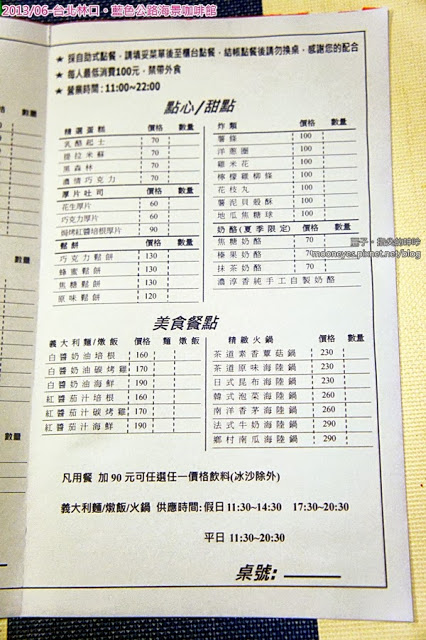 2013/06-台北林口。藍色公路海景咖啡館
★ 採自助式點餐，請填妥菜單後至櫃台點餐，結帳點餐後請勿換桌，感謝您的配合
★ 每人最低消費100元，禁帶外食
★ 營業時間：11:00~22:00
點心/甜點
精選蛋糕 價格 數量
乳酪起士 70
提拉米蘇 70
黑森林 70
濃情巧克力 70
厚片吐司 價格 數量
花生厚片 60
巧克力厚片 60
焗烤紅醬培根厚片 90
鬆餅 價格 數量
巧克力鬆餅 130
蜂蜜鬆餅 130
焦糖鬆餅 130
原味鬆餅 130
炸類 價格 數量
薯條 100
洋蔥圈 100
雞米花 100
檸檬雞柳條 100
花枝丸 100
薯泥貝殼酥 100
地瓜焦糖球 100
奶酪(夏季限定) 價格 數量
焦糖奶酪 70
榛果奶酪 70
抹茶奶酪 70
濃淳香純手工自製奶酪
mooneyes.pixnet.net/blog
美食餐點
義大利麵/燉飯 價格 麵 燉飯
白醬奶油培根 160
白醬奶油碳烤雞 170
白醬奶油海鮮 190
紅醬茄汁培根 160
紅醬茄汁碳烤雞 170
紅醬茄汁海鮮 190
精緻火鍋 價格 數量
茶道素香蕈菇鍋 230
茶道原味海陸鍋 230
日式昆布海陸鍋 230
韓式泡菜海陸鍋 300
南洋香茅海陸鍋 300
法式牛奶海陸鍋 300
鄉村南瓜海陸鍋 300
凡用餐 加 90 元可任選任一價格飲料(冰沙除外)
義大利麵/燉飯/火鍋 供應時間: 假日 11:30~14:30 17:30~20:30
平日 11:30~20:30
桌號: